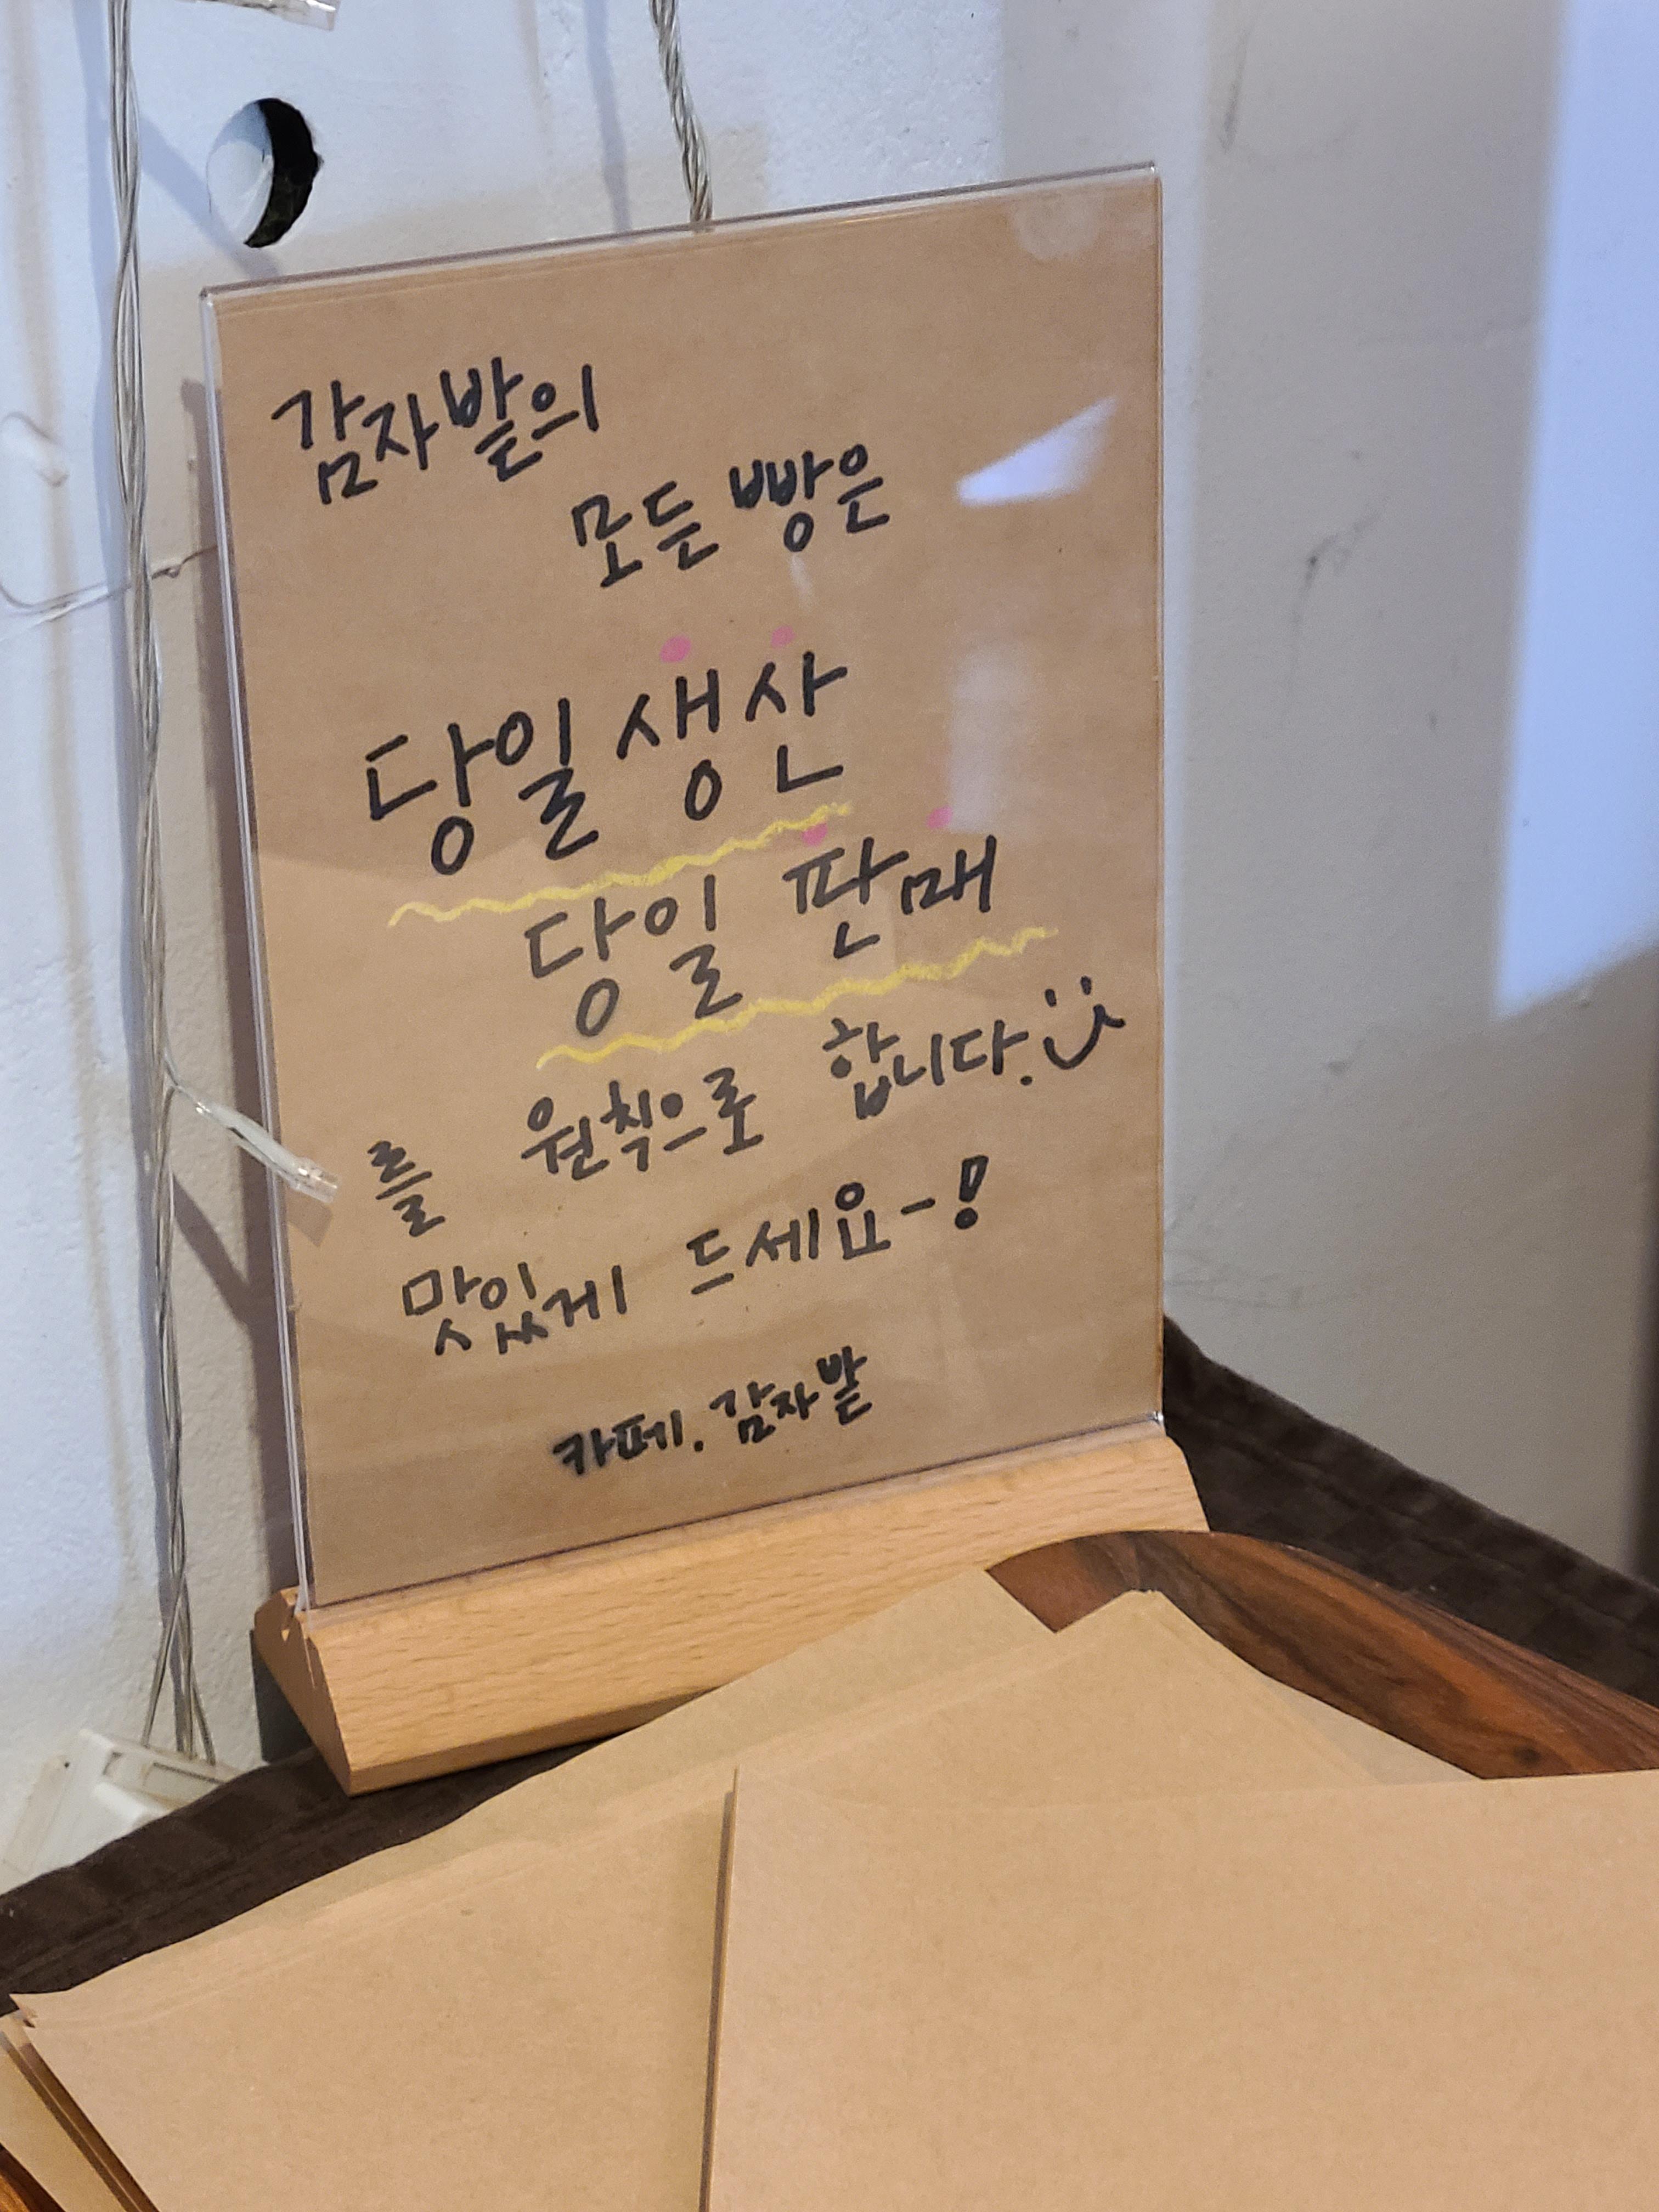 감자밭의
모든 빵은
당일 생산
당일 판매
를 원칙으로 합니다.
맛있게 드세요~!
카페.감자밭